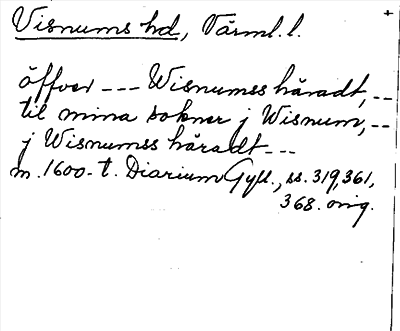 Visnums hd, Värml. l.
öffver --- Wisnumss häradt, --
til mina sokner j Wisnum, --
j Wisnumss häradt ---
m. 1600-t. Diarium Gyll., ss. 319, 361,
368. orig.